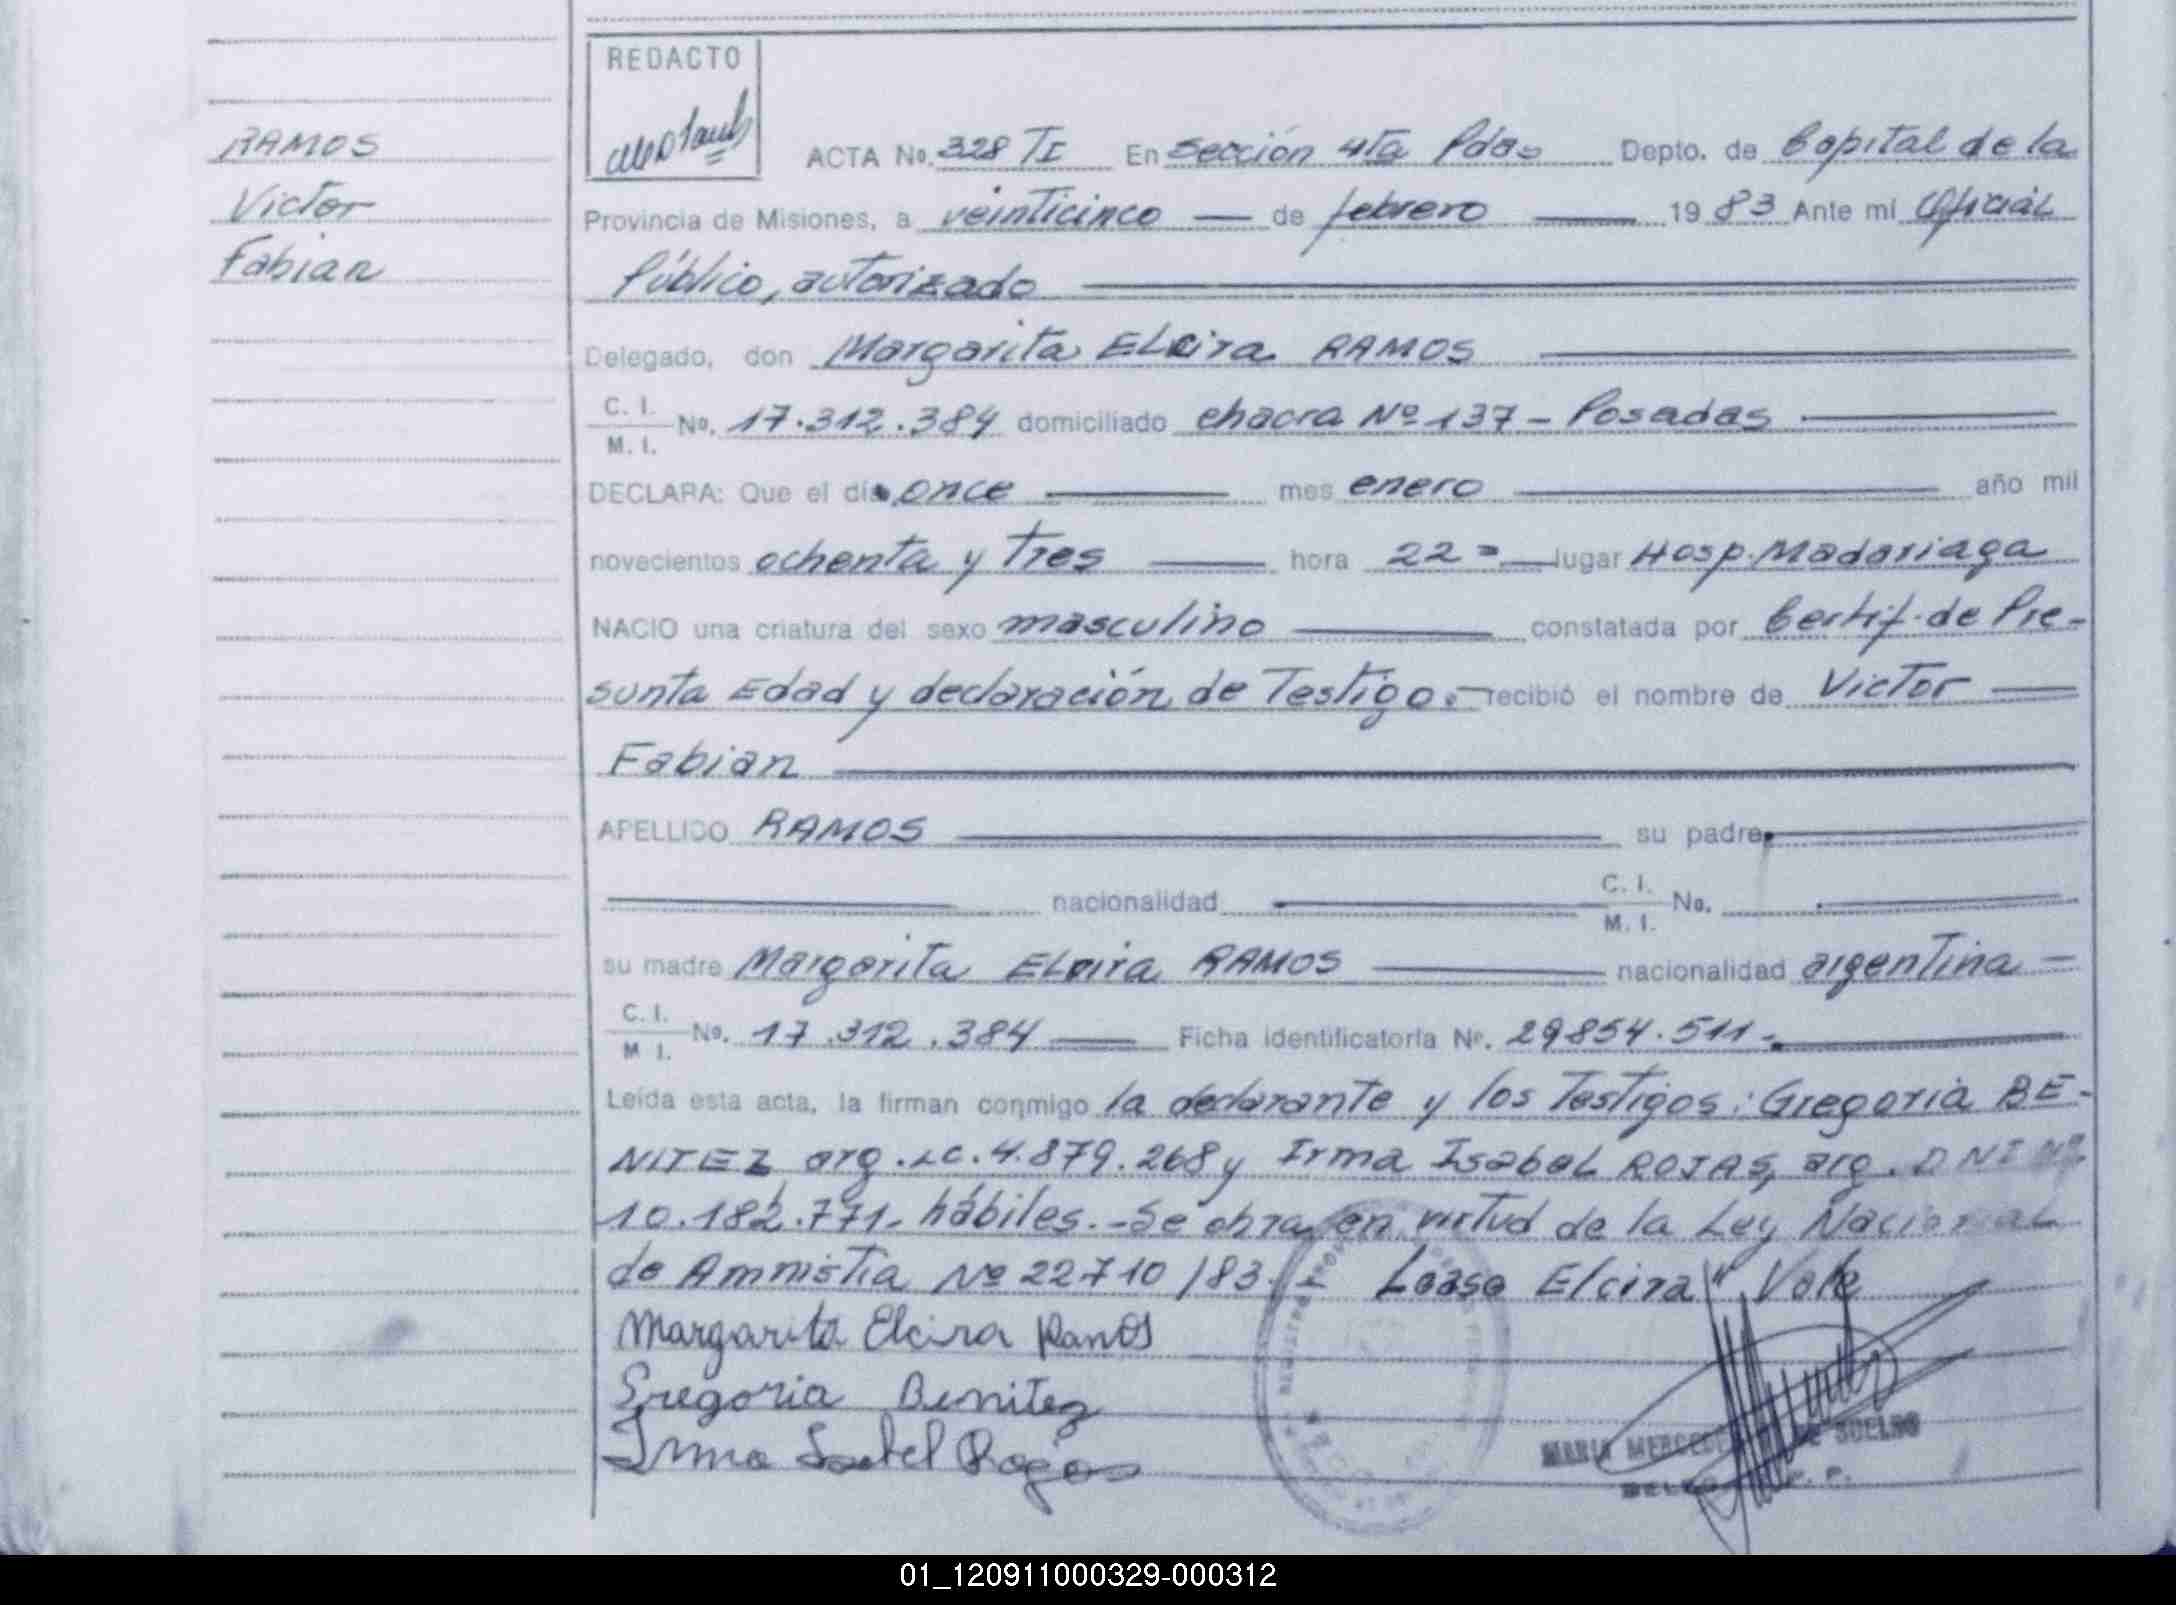 REDACTO
ACTA No. 328 TI En Sección 4ta Pdas Depto. de Capital de la
RAMOS
Victor
Fabian
Provincia de Misiones, a veinticinco de febrero 1983 Ante mi Oficial
Público, autorizado
Delegado, don Margarita ELcira RAMOS
C. I.
M. I. No. 17.312.384 domiciliado chacra Nº 137 - Posadas
DECLARA: Que el día once mes enero año mil
novecientos ochenta y Tres hora 22 = lugar Hosp. Madariaga
NACIO una criatura del sexo masculino constatada por Certif. de Pre-
sunta Edad y declaración de Testigo.- recibió el nombre de Victor
Fabian
APELLIDO RAMOS su padre
nacionalidad C. I.
M. I. No.
su madre Margarita ELcira RAMOS nacionalidad argentina
C. I.
M I. No. 17.312.384 Ficha identificatoria Nº. 29854.511.-
Leída esta acta, la firman conmigo la declarante y los Testigos: Gregoria BE-
NITEZ arg. LC. 4.879.268 y Irma Isabel ROJAS, arg. DNI Nº
10.182.771.- hábiles.- Se obra en virtud de la Ley Nacional
de Amnistia Nº 22710/83.- Lease Elcira" Vale
Margarita Elcira Ramos
Gregoria Benitez
Irma Isabel Rojas
MARIA MERCEDES DE SUELDO
01_120911000329-000312